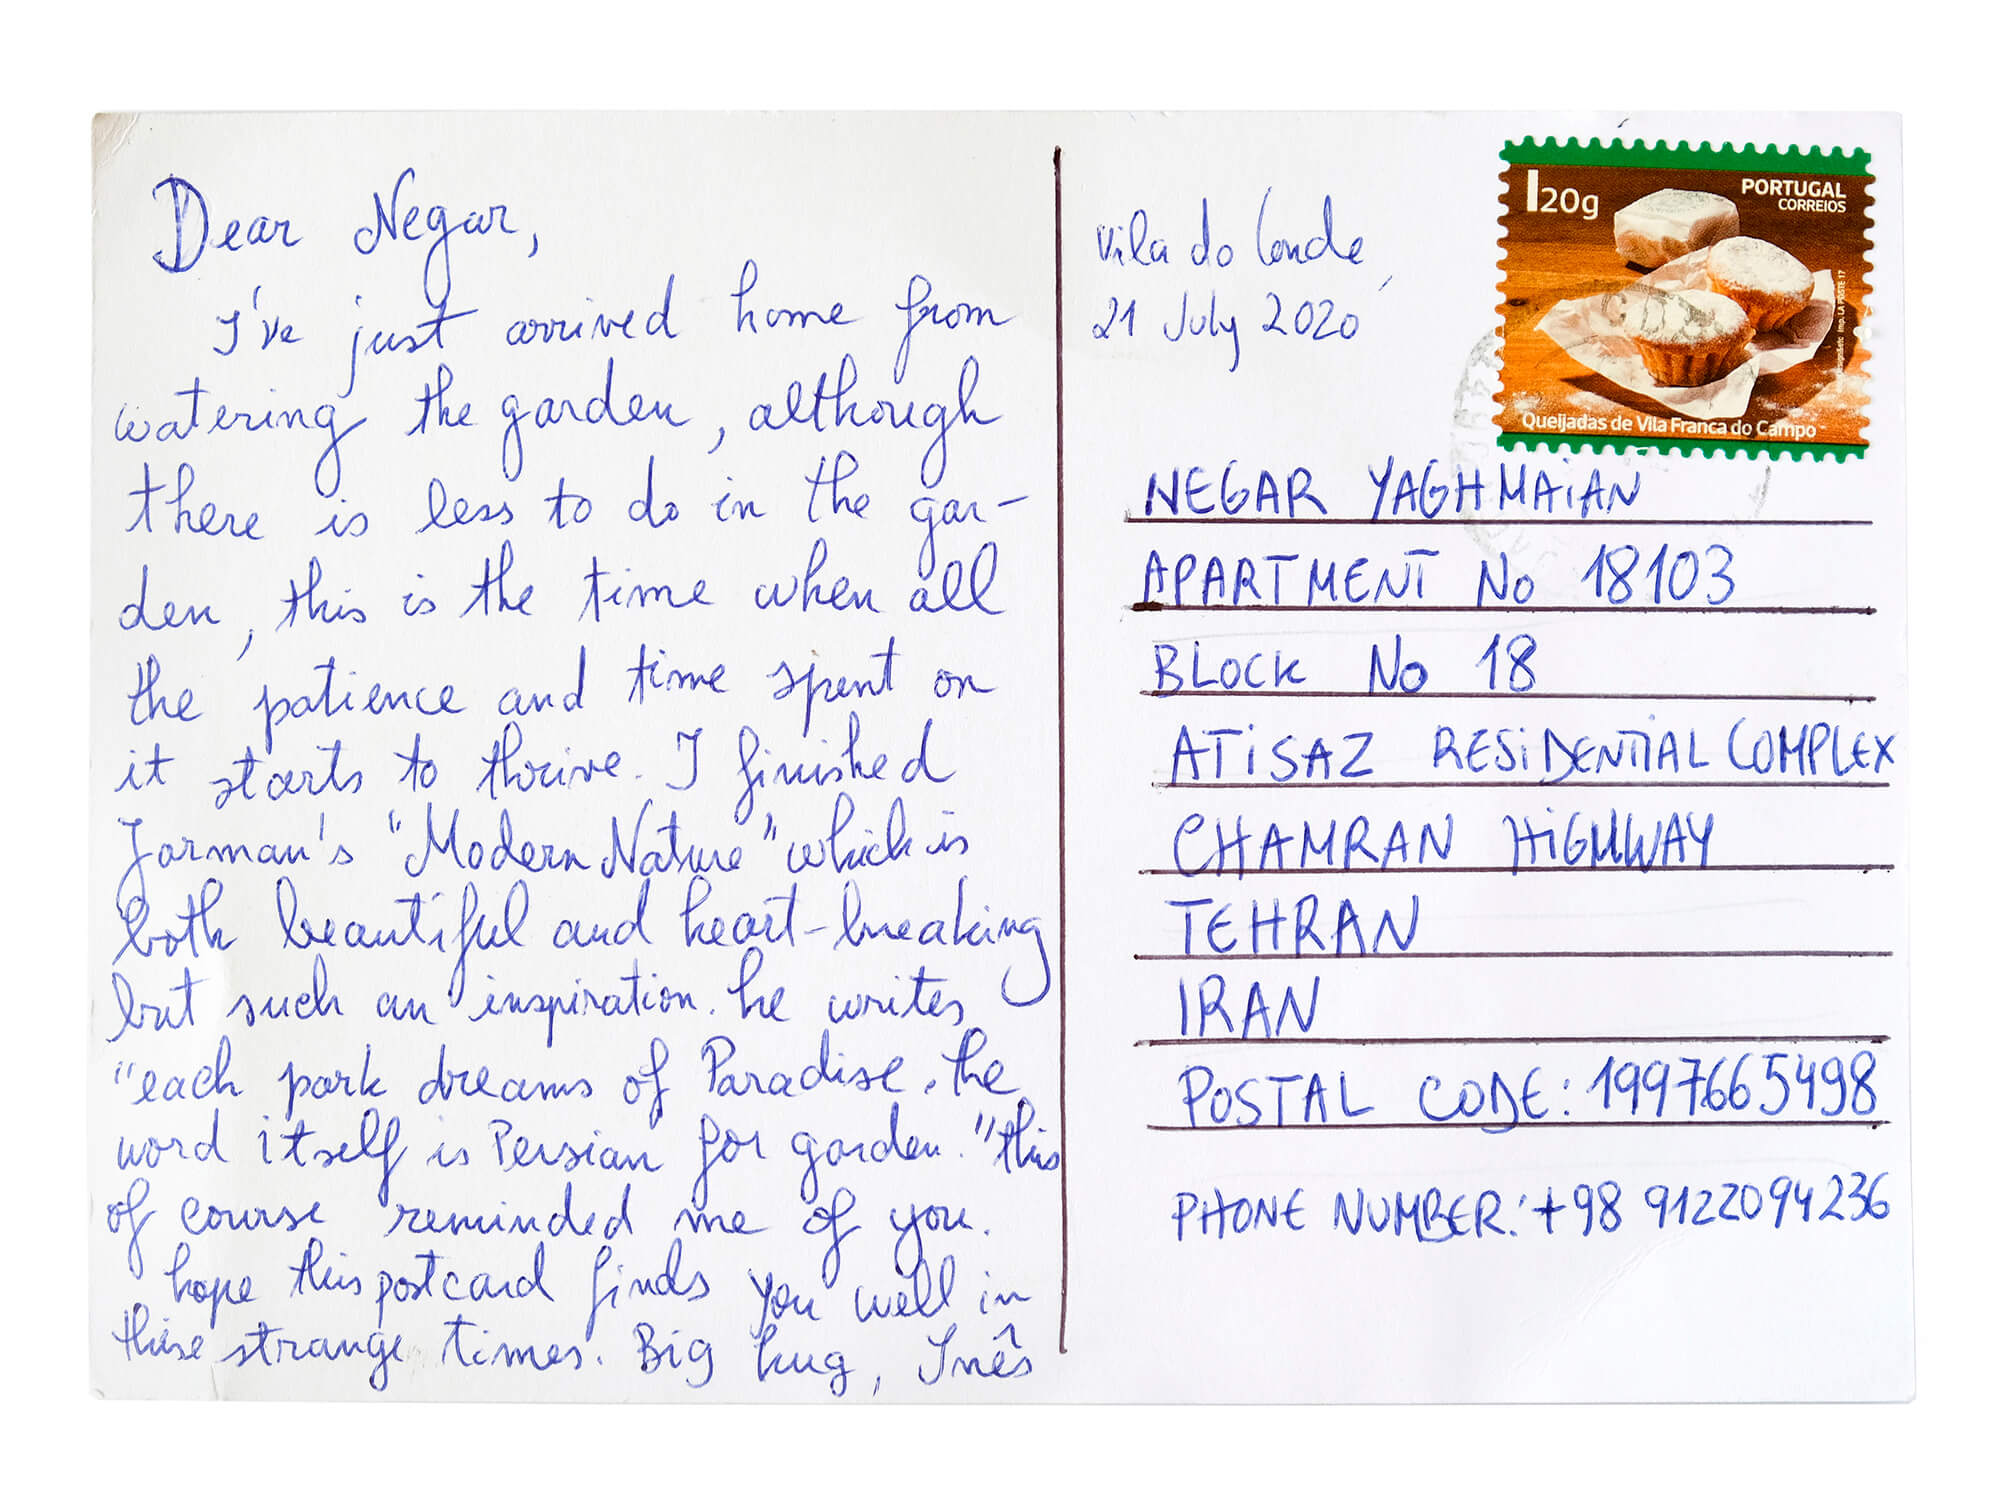 Dear Negar,
I've just arrived home from
watering the garden, although
there is less to do in the gar-
den, this is the time when all
the patience and time spent on
it starts to thrive. I finished
Jarman's "Modern Nature" which is
both beautiful and heart-breaking
but such an inspiration. he writes
"each park dreams of Paradise, the
word itself is Persian for garden." this
of course reminded me of you.
hope this postcard finds you well in
these strange times. Big hug, Inês
Vila do Conde,
21 July 2020
I20g
PORTUGAL
CORREIOS
Imp. LA POSTE 17
Queijadas de Vila Franca do Campo
NEGAR YAGHMAiAN
APARTMENT No 18103
BLOCK No 18
ATiSAZ RESiDENTiAL COMPLEX
CHAMRAN HiGHWAY
TEHRAN
IRAN
POSTAL CODE: 1997665498
PHONE NUMBER: +98 9122094236